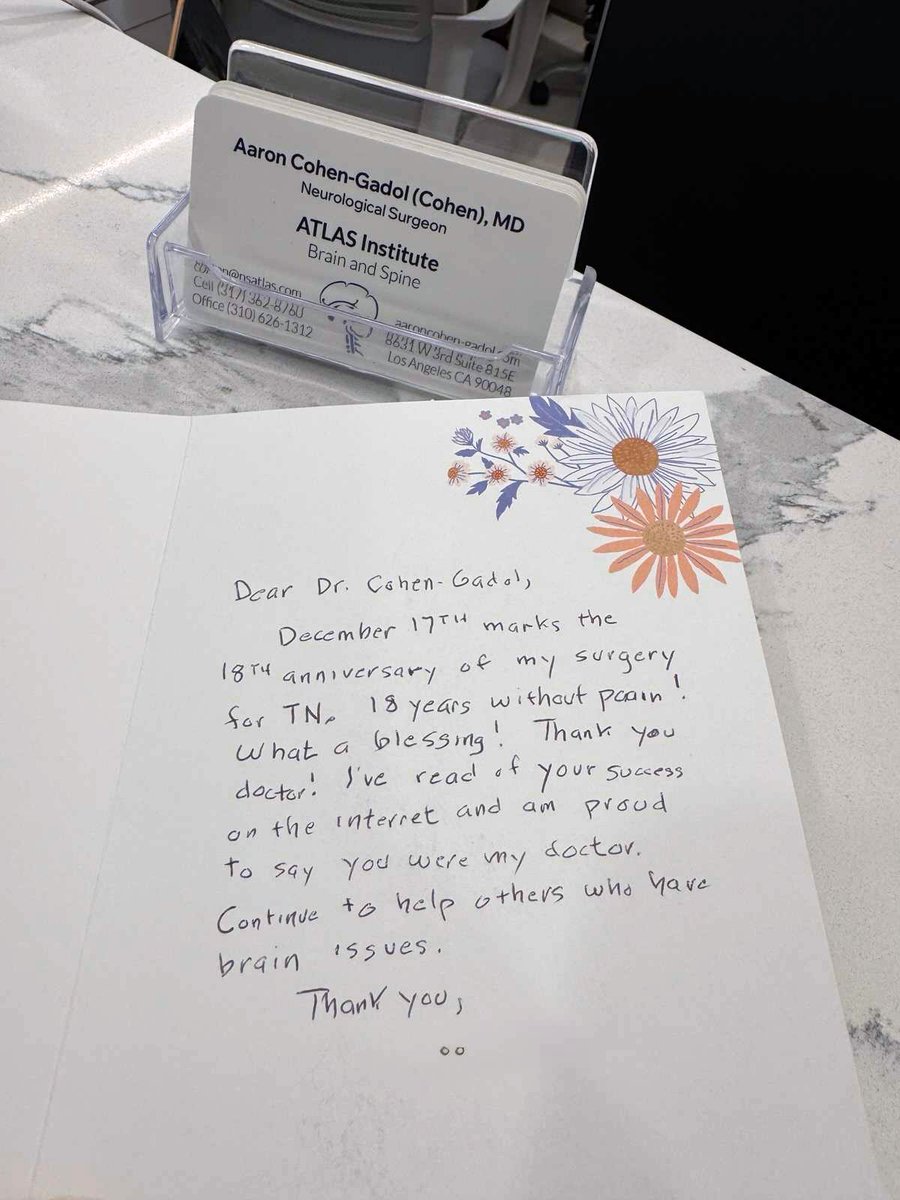 Aaron Cohen-Gadol (Cohen), MD
Neurological Surgeon
ATLAS Institute
Brain and Spine
@nsatlas.com
Cell (317) 362-8760
Office (310) 626-1312
aaroncohen-gadol.com
8631 W 3rd Suite 815E
Los Angeles CA 90048
Dear Dr. Cohen-Gadol,
December 17TH marks the
18TH anniversary of my surgery
for TN. 18 years without pain!
What a blessing! Thank you
doctor! I've read of your success
on the internet and am proud
to say you were my doctor.
Continue to help others who have
brain issues.
Thank you,